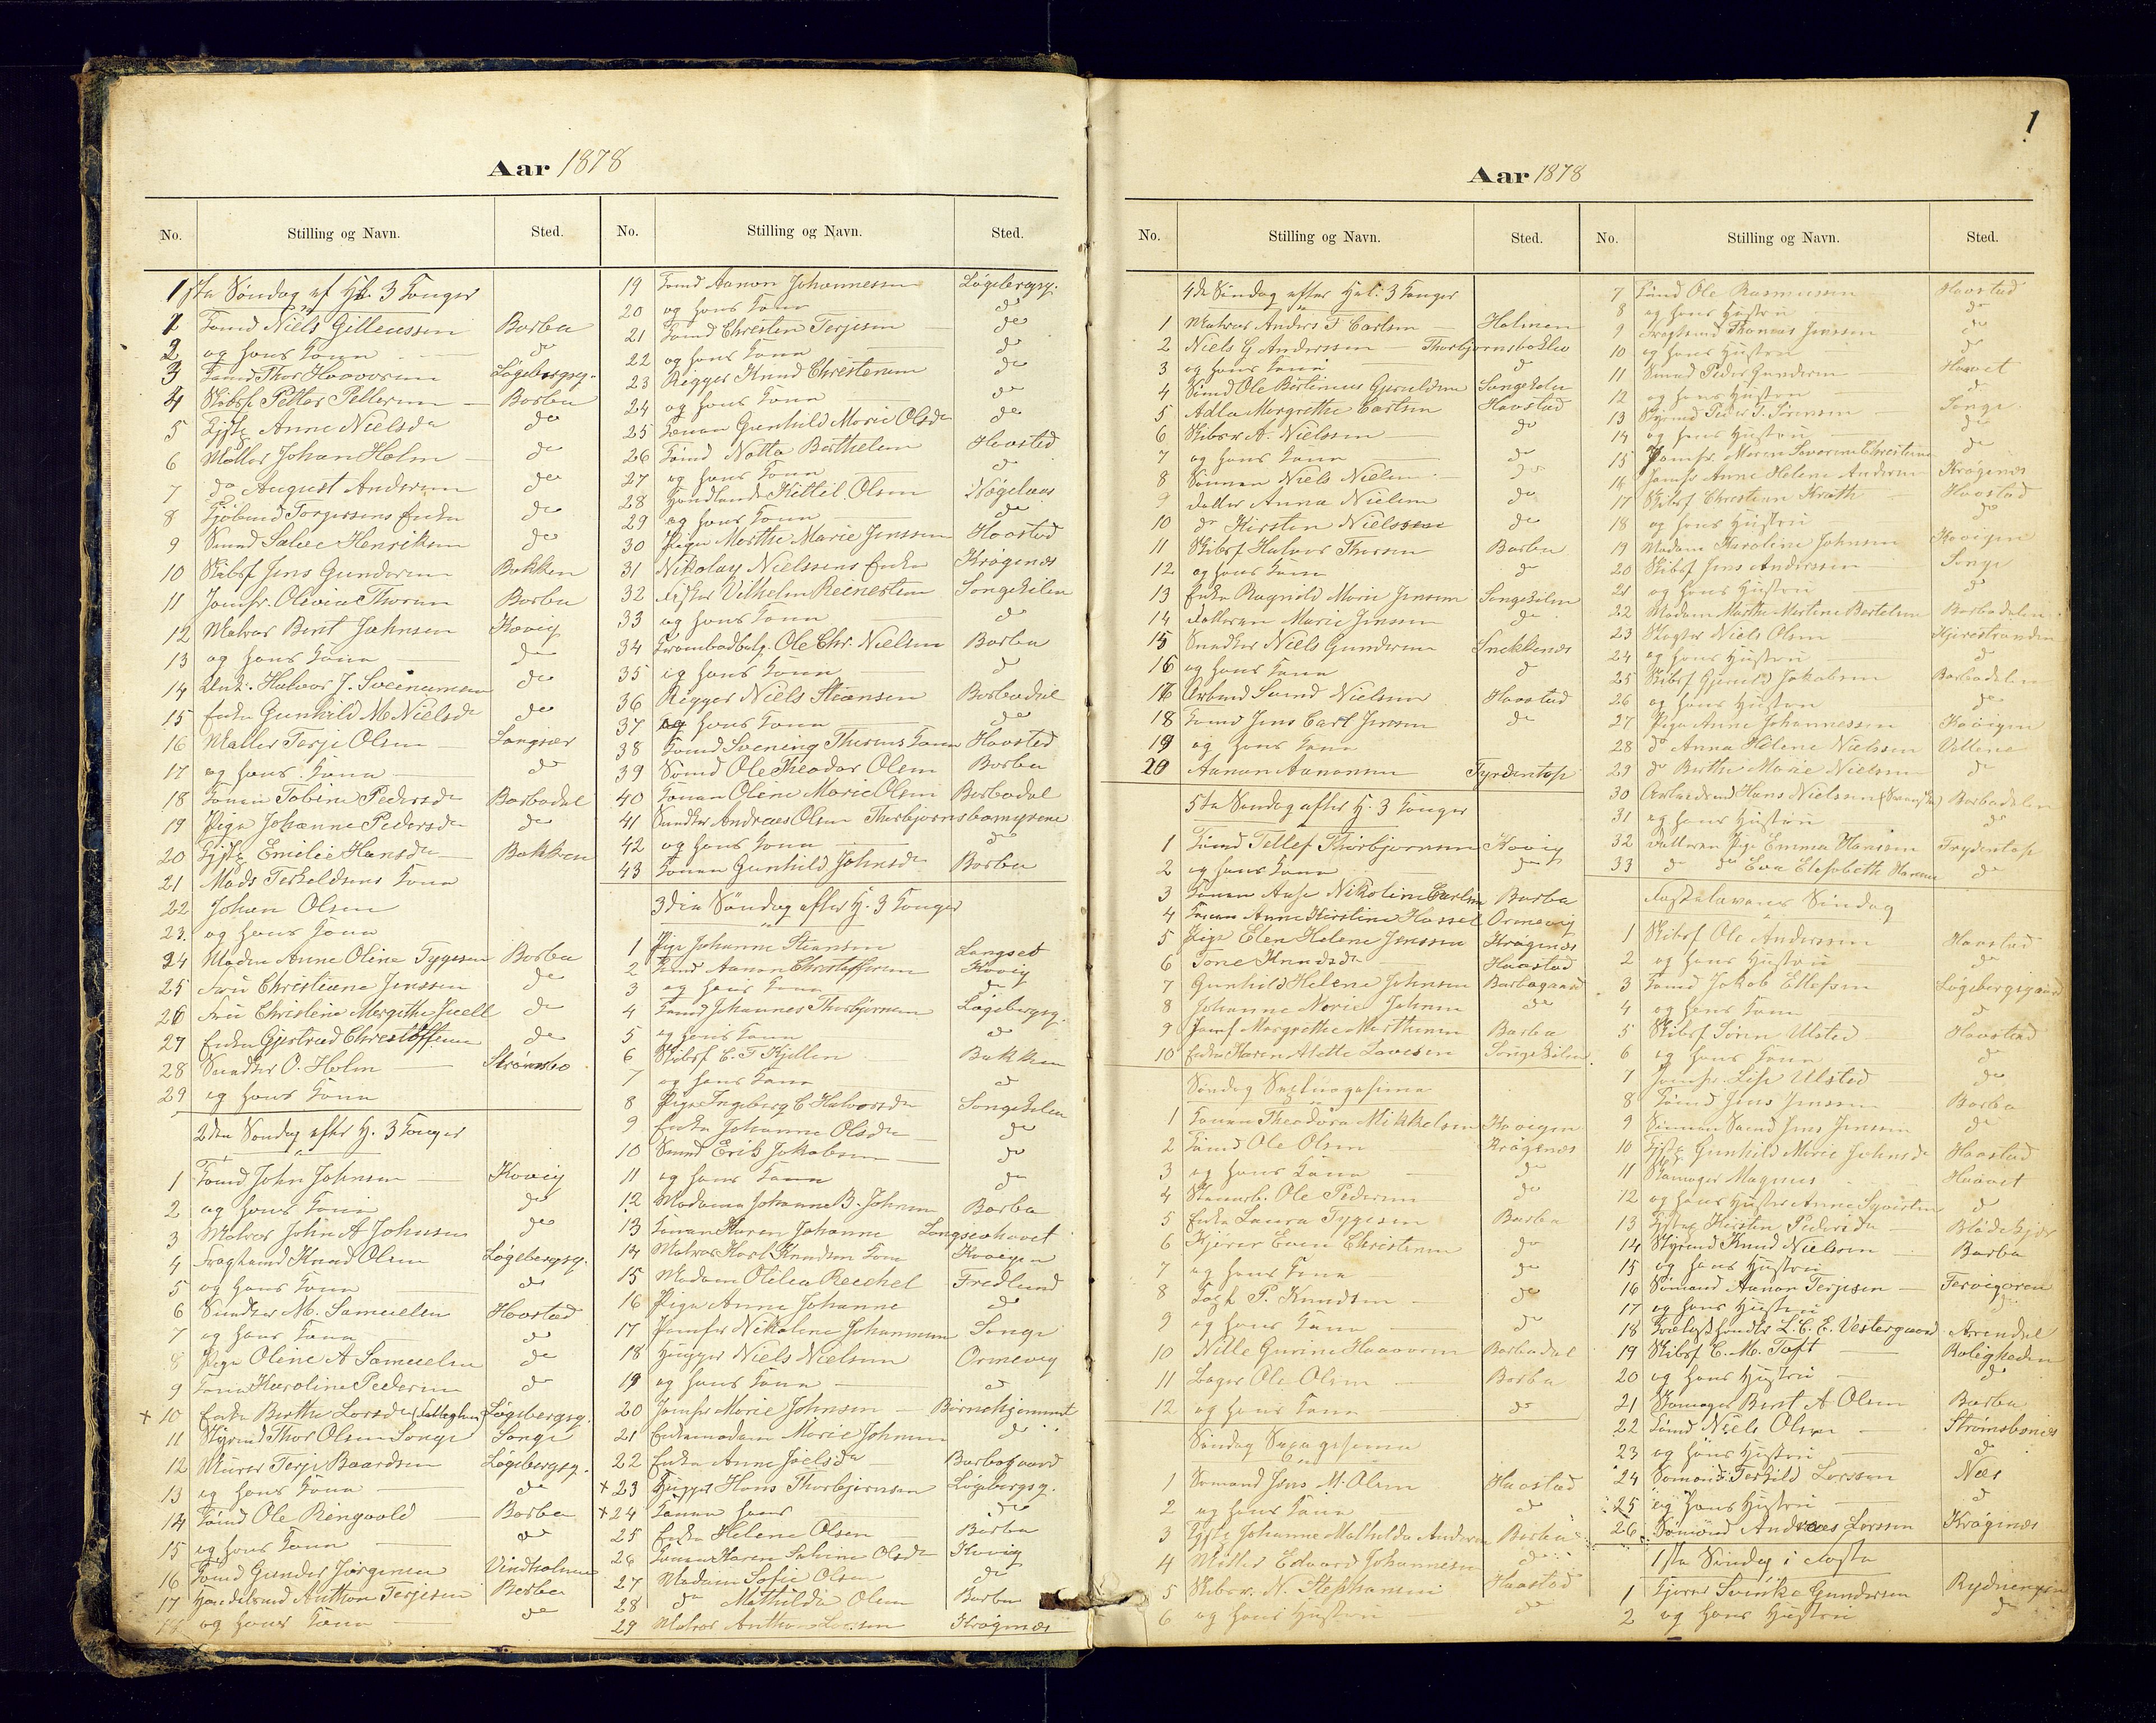 Aar 1878
No. Stilling og Navn. Sted. No. Stilling og Navn. Sted.
1ste Søndag ef H. 3 Konger
1 Sømd Niels Gilleussen Barbu
2 og hans Kone do
3 Sømd Thor Haavorsen Løgebergsg.
4 Skibsf Petter Pettersen Barbu
5 Anne Nielsdr do
6 Møller Johan Holm do
7 do August Andersen do
8 Torgersens Enke do
9 Henriksen do
10 Skibsf Jens Gundersen Bakken
11 Jomfr. Olivia Thorsen Barbu
12 Matros Bent Johnsen Kovig
13 og hans Kone do
14 Halvor J. Sveinumsen do
15 Enke Gunhild M Nielsdr do
16 Maller Terje Olsen Langsæ
17 og hans Kone do
18 Konen Tobine Pedersdr Barbodal
19 Pige Johanne Pedersdr do
20 Emilie Hansdr Bakken
21 Mads Terkeldsens Kone
22 Johan Olsen
23. og hans Kone
24 Madm Anne Oline Tygesen Barbu
25 Fru Christiane Jenssen do
26 Fru Christine Margrethe Juell do
27 Enke Gjertrud Christoffersen do
28 Snedker O. Holm Strømsbo
29 og hans Kone
2den Søndag efter H. 3 Konger
1 Sømd John Johnsen Kovig
2 og hans Kone do
3 Matros John A Johnsen do
4 Fragtemd Knud Olsen Løgebergsg.
5 og hans Kone do
6 Snedker M. Samuelsen Haostad
7 og hans Kone do
8 Pige Oline A Samuelsen do
9 Kone Karoline Pedersen do
+ 10 Enke Berthe Larsdr Løgebergsg.
11 Styrmd Thor Olsen Songe Songe
12 Murer Terje Baardsen Løgebergsg.
13 og hans Kone do
14 Sømd Ole Ringvold Barbu
15 og hans Kone do
16 Sømd Gunder Jørgensen Vindholmen
17 Handelsmd Anthon Terjesen Barbu
18 og hans Kone do
19 Sømd Aanon Johannessen Løgebergsg.
20 og hans Kone do
21 Sømd Christen Terjesen do
22 og hans Kone do
23 Rigger Knud Christensen do
24 og hans Kone do
25 Konen Gunhild Marie Olsdr do
26 Sømd Notto Berthelsen Haostad
27 og hans Kone do
28 Handlende Kittil Olsen
29 og hans Kone do
30 Pige Marthe Marie Jenssen Haostad
31 Nikolay Nielssens Enke Krøgenes
32 Fisker Vilhelm Reinertsen Songekilen
33 og hans Kone do
34 Ole Chr. Nielsen Barbu
35 og hans Kone do
36 Rigger Niels Stiansen Barbodal
37 og hans Kone do
38 Sømd Svening Thorsens Kone Haostad
39 Sømd Ole Theodor Olsen Barbu
40 Konen Olene Marie Olsen Barbodal
41 Snedker Andreas Olsen Thorbjørnsbomyrene
42 og hans Kone do
43 Konen Gunhild Johnsdr Barbu
3die Søndag efter H. 3 Konger
1 Pige Johanne Stiansen Langset
2 Sømd Aanon Christoffersen Kovig
3 og hans Kone do
4 Sømd Johannes Thorbjørnsen Løgebergsg.
5 og hans Kone do
6 Skibsf C. F Kjellen Bakken
7 og hans Kone do
8 Pige Ingeborg C Halvorsdr Songekilen
9 Enke Johanne Olsdr do
10 Smed Erik Jakobsen do
11 og hans Kone do
12 Madamen Johanne B. Johnsen Barbu
13 Konen Karen Johanne Langsevhavet
14 Matros Karl Knudsen Kone Kovigen
15 Madam Otilia Reichel Fredlund
16 Pige Anne Johanne do
17 Jomfru Nikoline Johannesen Songe
18 Hugger Niels Nielsen Ormevig
19 og hans Kone do
20 Jomfr Marie Johnsen Børnehjemmet
21 Enkemadam Marie Johnsen do
22 Enke Anne Joelsdr Barbogaard
+ 23 Hugger Hans Thorbjørnsen Løgebergsg.
+ 24 Konen hans do
25 Enke Helene Olsen Barbu
26 Konen Karen Sabine Olsdr Kovig
27 Madam Sofie Olsen do
28 do Mathilde Olsen Barbu
29 Matros Anthon Larsen Krøgenes
1
Aar 1878
No. Stilling og Navn. Sted. No. Stilling og Navn. Sted.
4de Søndag efter Hel: 3 Konger
1 Matros Anders T Carlsen Holmen
2 Niels G Anderssen Thorbjørnsboklev
3 og hans Kone do
4 Sømd Ole Bertinius Gjeruldsen Songekilen
5 Adla Margrethe Carlsen Haostad
6 Skibsr A. Nielssen do
7 og hans Kone do
8 Sønnen Niels Nielsen do
9 datter Anna Nielsen do
10 do Kirsten Nielssen do
11 Skibsf Halvor Thorsen Barbu
12 og hans Kone do
13 Enke Ragnild Marie Jensen Songekilen
14 datteren Marie Jenssen do
15 Snedker Niels Gundersen Snekkenes
16 og hans Kone do
17 Arbmd Svend Nielsen Haostad
18 Sømd Jens Carl Jenssen do
19 og hans Kone
20 Aanon Aanonsen Frydentop
5te Søndag efter H. 3 Konger
1 Sømd Tellef Thorbjørnsen Kovig
2 og hans Kone do
3 Konen Aase Nikoline Carlsen Barbu
4 Konen Anne Kirstine Hassel Ormevig
5 Pige Elen Helene Jenssen Krøgenes
6 Tone Knudsdr Haostad
7 Gunhild Helene Johnsen Barbogaard
8 Johanne Marie Johnsen do
9 Jomf Margrethe Mortensen Barbu
10 Enke Karen Alette Lovesen Songekilen
Søndag Septuagesima
1 Konen Theodora Mikkelsen Kovigen
2 Sømd Ole Olsen Krøgenes
3 og hans Kone do
4 Ole Pedersen do
5 Enke Laura Tygesen Barbu
6 Kjører Even Christensen do
7 og hans Kone do
8 P. Knudsen do
9 og hans Kone do
10 Nille Gurine Haavorsen Barbodal
11 Bager Ole Olsen Barbu
12 og hans Kone do
Søndag Sexagesima
1 Sømand Jens M. Olsen Haostad
2 og hans Kone do
3 Johanne Mathilda Andersen Barbu
4 Edvard Johannesen do
5 Skibsr. N. Stephansen Haostad
6 og hans Hustru do
7 Sømd Ole Rasmussen Haostad
8 og hans Hustru do
9 Fragtemd Thomas Jenssen do
10 og hans Hustru do
11 Smed Peder Gundersen Haavet
12 og hans Hustru do
13 Styrmd Peder T. Sørensen Songe
14 og hans Hustru do
15 Jomfr. Maren Severine Christensen do
16 Jomfr Anne Helene Andersen Krøgenes
17 Skibsf Christian Krøth Haostad
18 og hans Hustru do
19 Madam Karoline Johnsen Kovigen
20 Skibsf Jens Anderssen Songe
21 og hans Hustru do
22 Madam Marthe Martine Bertelsen Barbodalen
23 Niels Olsen Kjirstranden
24 og hans Hustru do
25 Skibsf Gjeruld Jakobsen Barbodalen
26 og hans Hustru do
27 Pige Anne Johannessen Kovigen
28 do Anna Helene Nielssen Vollene
29 do Berthe Marie Nielsen do
30 Arbeidsmd Hans Nielssen Barbodalen
31 og hans Hustru do
32 datteren Pige Emma Hansen Frydentop
33 do do Eva Elisebeth Hansen do
Fastelavens Søndag
1 Skibsf Ole Anderssen Haostad
2 og hans Hustru do
3 Sømd Jakob Ellefsen Løgebergsgaard
4 og hans Kone do
5 Skibsf Sørin Ulsted Haostad
6 og hans Kone do
7 Jomfr. Lise Ulsted do
8 Sømd Jens Jenssen Barbu
9 Sønnen Svend Jens Jenssen do
10 Gunhild Marie Johnsdr Haostad
11 Skomager Magnus Haavet
12 og hans Hustru Anne Syvertsen do
13 Kirsten Pedersdr Blødekjær
14 Styrmd Knud Nielssen Barbu
15 og hans Hustru
16 Sømand Aanon Terjesen Tervigoren
17 og hans Hustru do
18 L. C. E. Vestergaard Arendal
19 Skibsf C. M. Toft Roligheden
20 og hans Hustru do
21 Skomager Bent A Olsen Barbu
22 Sømd Niels Olsen Strømsbones
23 og hans Hustru do
24 Sømand Terkild Larssen Nes
25 og hans Hustru do
26 Sømand Andreas Larssen Krøgenes
1ste Søndag i Faste
1 Kjører Svinke Gundersen Rydningen
2 og hans Hustru do